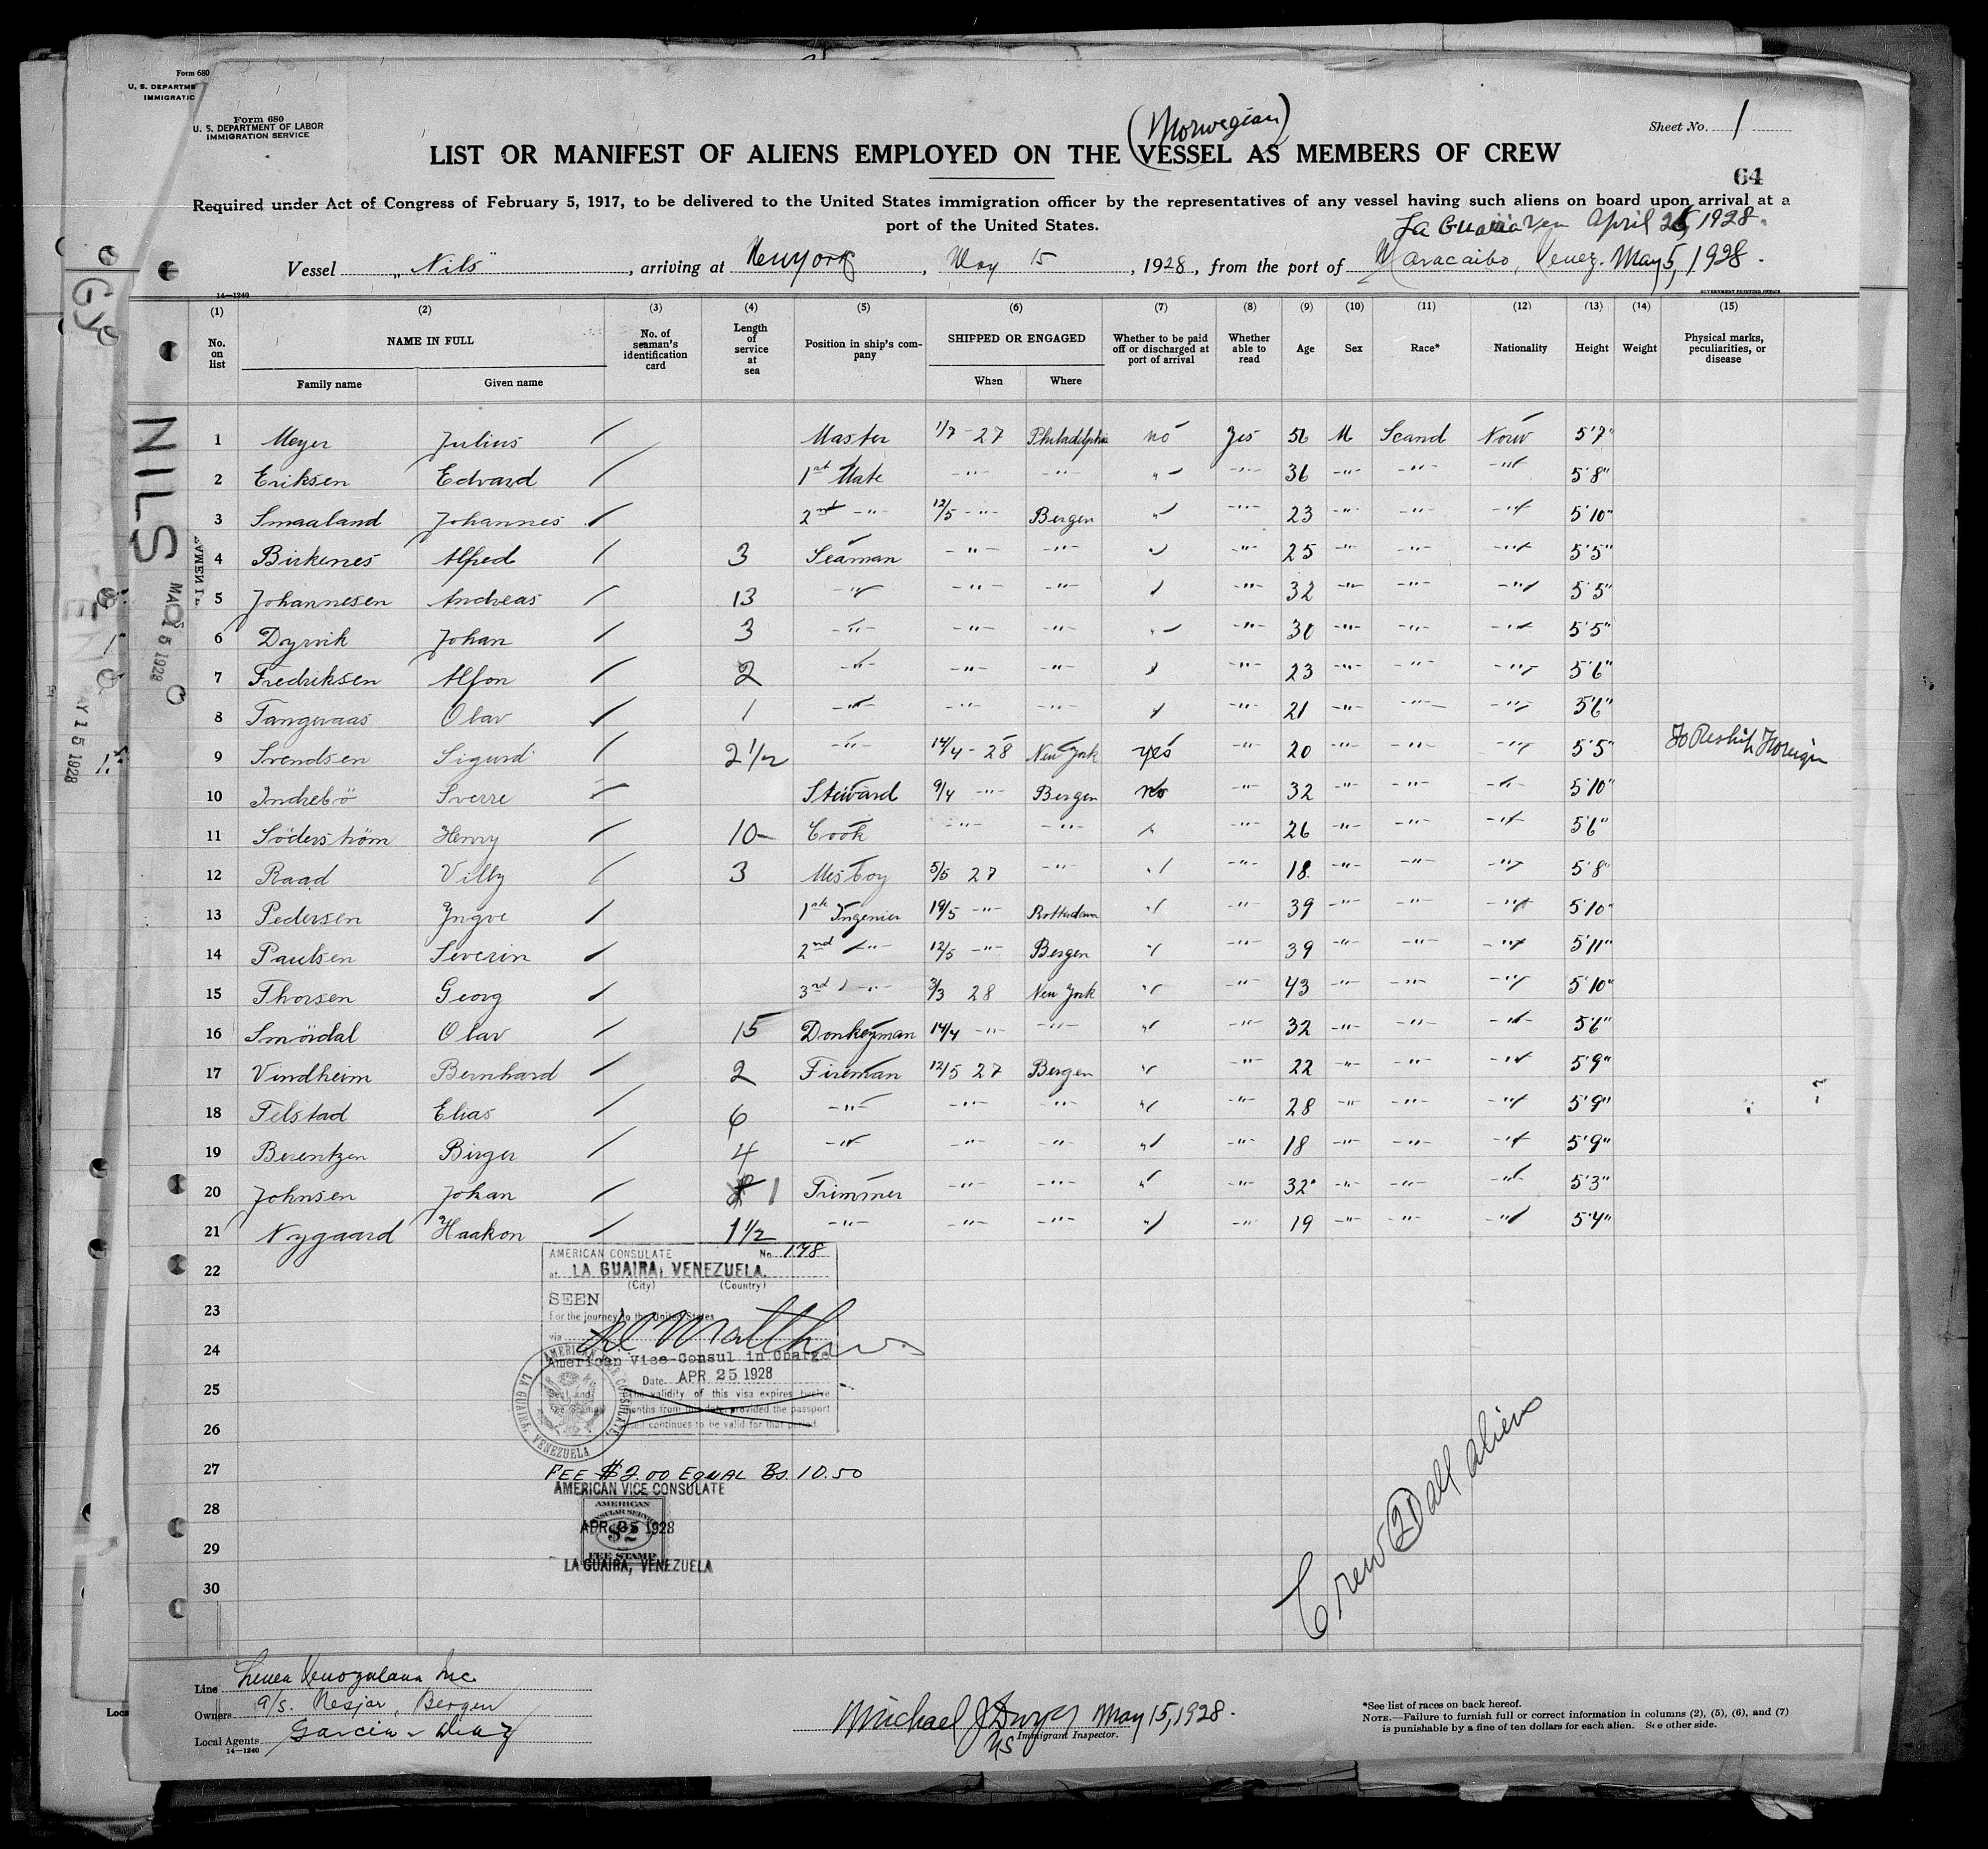 Form 680
U. S. DEPARTME
IMMIGRATIC
Form 680
U. S. DEPARTMENT OF LABOR
IMMIGRATION SERVICE
(Norwegian)
Sheet No. 1
LIST OR MANIFEST OF ALIENS EMPLOYED ON THE VESSEL AS MEMBERS OF CREW
64
Required under Act of Congress of February 5, 1917, to be delivered to the United States immigration officer by the representatives of any vessel having such aliens on board upon arrival at a
port of the United States.
La Guaira Ven April 25, 1928.
Vessel "Nils", arriving at New York, May 15, 1928, from the port of Maracaibo, Venez. May 5, 1928.
14—1240
GOVERNMENT PRINTING OFFICE
(1) (2) (3) (4) (5) (6) (7) (8) (9) (10) (11) (12) (13) (14) (15)
No. on list
NAME IN FULL
Family name
Given name
No. of seaman's identification card
Length of service at sea
Position in ship's company
SHIPPED OR ENGAGED
When
Where
Whether to be paid off or discharged at port of arrival
Whether able to read
Age
Sex
Race*
Nationality
Height
Weight
Physical marks, peculiarities, or disease
1 Meyer Julius Master 1/7-27 Philadelphia no Yes 56 M Scand Norw 5'7"
2 Eriksen Edvard 1st Mate -"- -"- " -"- 36 -"- -"- -"- 5'8"
3 Smaaland Johannes 2nd -"- 12/5 -"- Bergen " -"- 23 -"- -"- -"- 5'10"
4 Birkenes Alfred 3 Seaman -"- -"- " -"- 25 -"- -"- -"- 5'5"
5 Johannesen Andreas 13 -"- -"- -"- " -"- 32 -"- -"- -"- 5'5"
6 Dyrvik Johan 3 -"- -"- -"- " -"- 30 -"- -"- -"- 5'5"
7 Fredriksen Alfon 2 -"- -"- -"- " -"- 23 -"- -"- -"- 5'6"
8 Tangeraas Olav 1 -"- -"- -"- " -"- 21 -"- -"- -"- 5'6"
9 Svendsen Sigurd 2 1/2 -"- 14/4-28 New York yes -"- 20 -"- -"- -"- 5'5" To Reship Foreign
10 Indrebö Sverre Steward 9/4 -"- Bergen no -"- 32 -"- -"- -"- 5'10"
11 Söderström Henry 10 Cook -"- -"- " -"- 26 -"- -"- -"- 5'6"
12 Raad Villy 3 Mesboy 5/5 27 -"- " -"- 18 -"- -"- -"- 5'8"
13 Pedersen Yngve 1st Ingenier 19/5 -"- Rotterdam " -"- 39 -"- -"- -"- 5'10"
14 Paulsen Severin 2nd -"- 12/5 -"- Bergen " -"- 39 -"- -"- -"- 5'11"
15 Thorsen Georg 3rd -"- 3/3 28 New York " -"- 43 -"- -"- -"- 5'10"
16 Smördal Olav 15 Donkeyman 14/4 -"- -"- " -"- 32 -"- -"- -"- 5'6"
17 Vindheim Bernhard 2 Fireman 12/5 27 Bergen " -"- 22 -"- -"- -"- 5'9"
18 Felstad Elias 6 -"- -"- -"- " -"- 28 -"- -"- -"- 5'9"
19 Berentzen Birger 4 -"- -"- -"- " -"- 18 -"- -"- -"- 5'9"
20 Johnsen Johan 1 Trimmer -"- -"- " -"- 32 -"- -"- -"- 5'3"
21 Nygaard Haakon 1 1/2 -"- -"- -"- " -"- 19 -"- -"- -"- 5'4"
22
23
24
25
26
27
28
29
30
NILS
MAY 15 1928
MAY 15 1928
AMERICAN CONSULATE No. 148
at LA GUAIRA, VENEZUELA.
(City) (Country)
SEEN
For the journey to the United States
via
American Vice Consul in Charge
Date APR 25 1928
The validity of this visa expires twelve
months from this date, provided the passport
itself continues to be valid for that period.
AMERICAN VICE CONSULATE
LA GUAIRA, VENEZUELA
FEE $2.00 EQUAL Bs. 10.50
AMERICAN VICE CONSULATE
AMERICAN
CONSULAR SERVICE
$2
FEE STAMP
APR 25 1928
LA GUAIRA, VENEZUELA
Crew 21 all aliens
Line Linea Venezolana Inc.
Owners a/s. Nesjar, Bergen
Local Agents Garcia & Diaz
14—1240
Michael J Dwyer May 15, 1928.
Immigrant Inspector.
*See list of races on back hereof.
NOTE.—Failure to furnish full or correct information in columns (2), (5), (6), and (7)
is punishable by a fine of ten dollars for each alien. See other side.